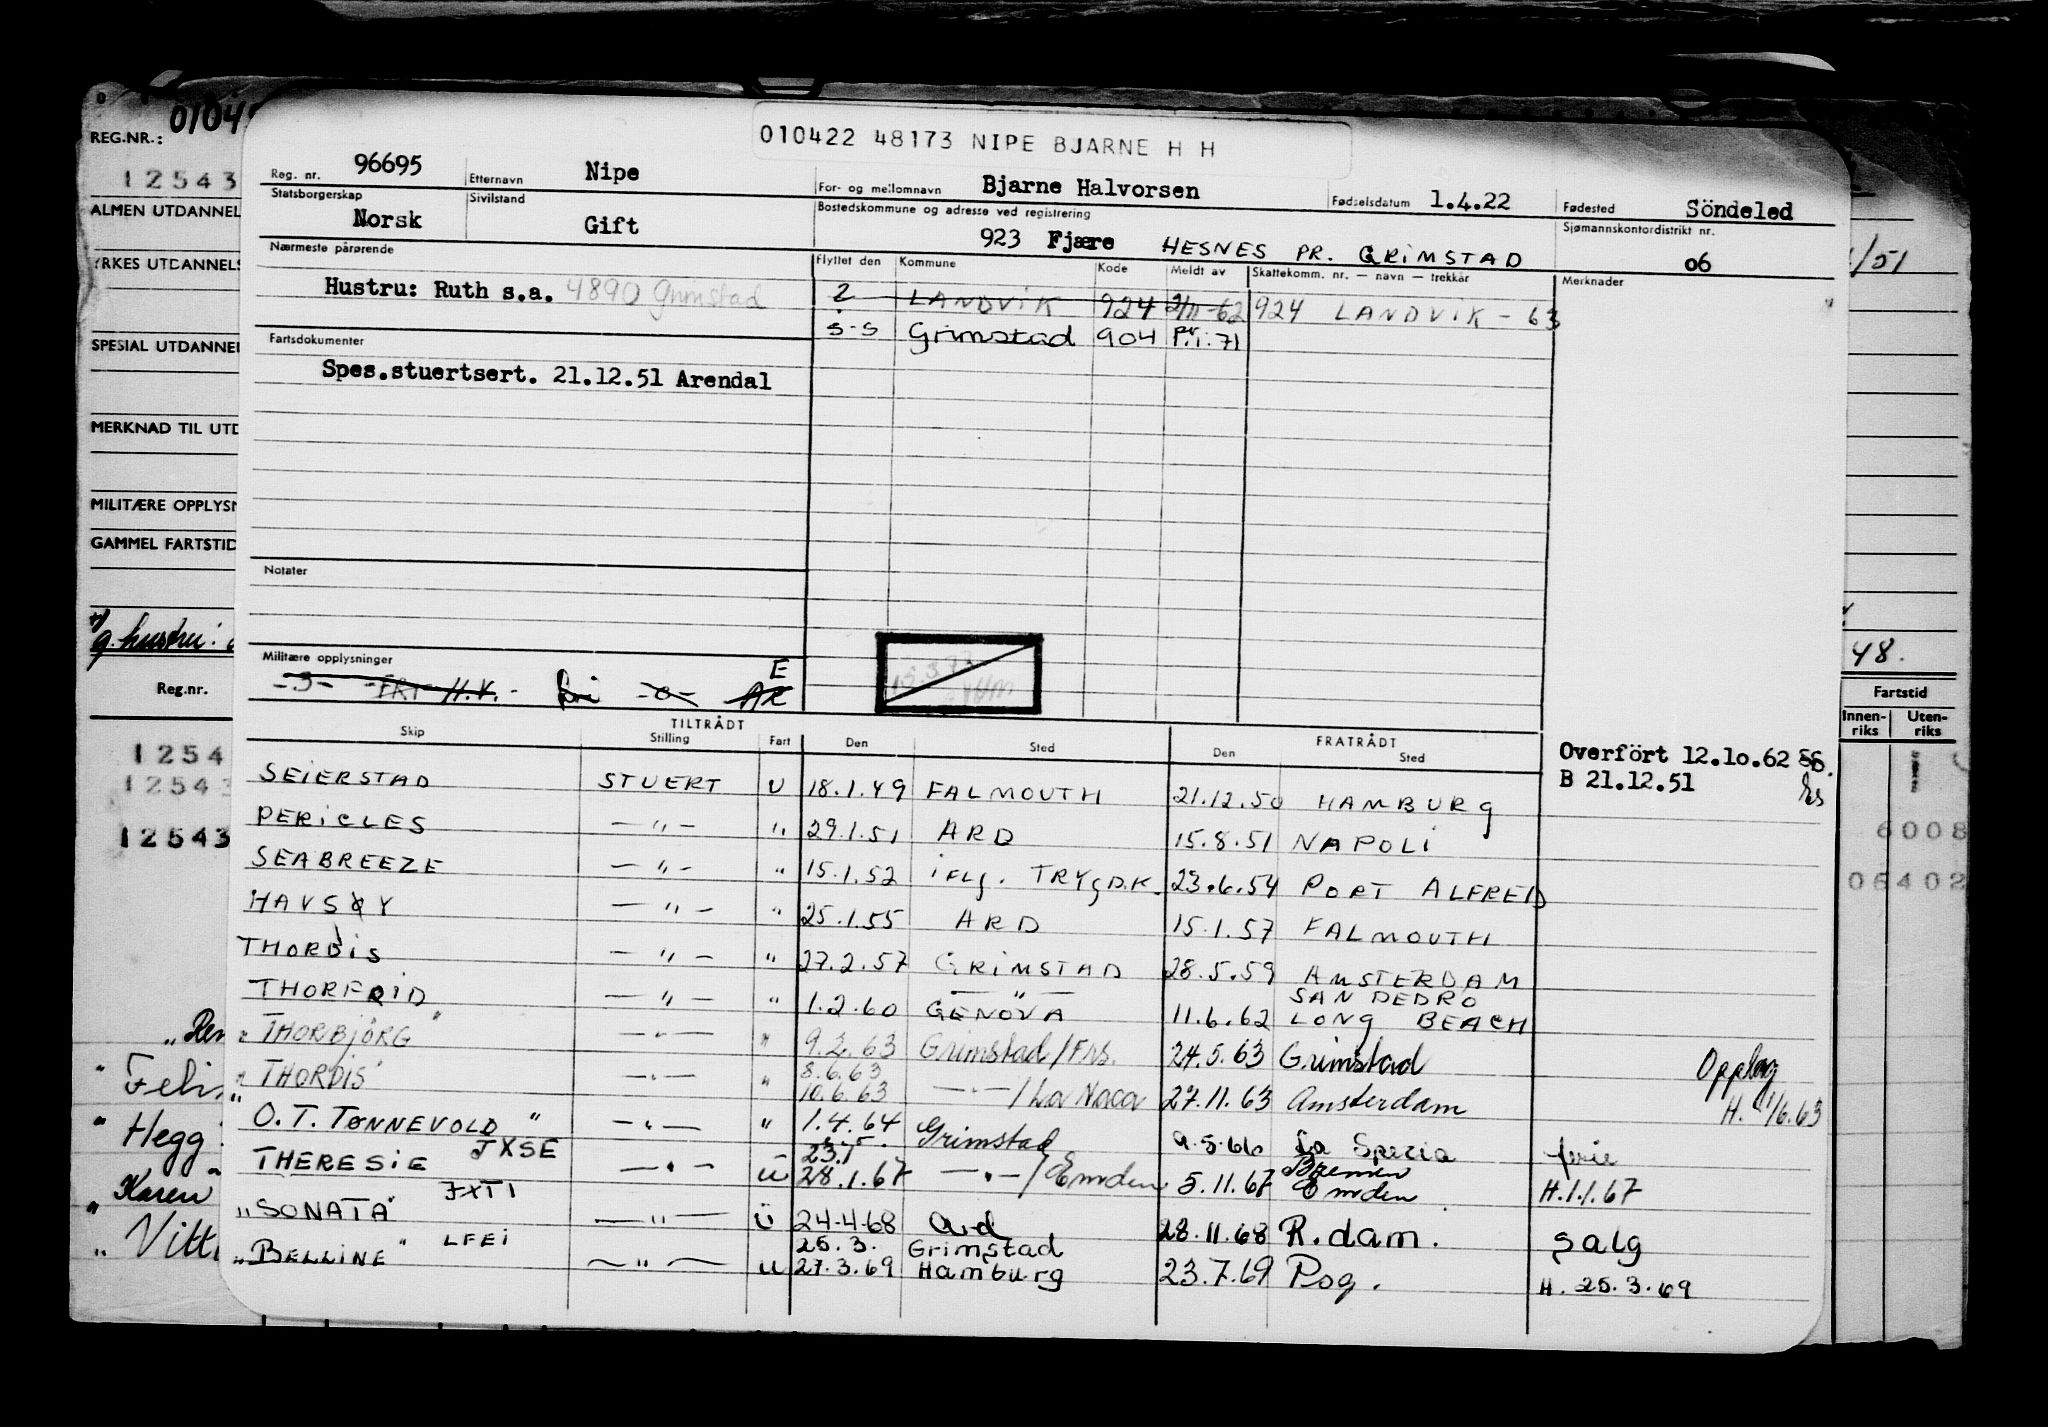 010422 48173 NIPE BJARNE H H
REG.NR.:
12543
ALMEN UTDANNEL
YRKES UTDANNELS
SPESIAL UTDANNEL
MERKNAD TIL UTD
MILITÆRE OPPLYSN
GAMMEL FARTSTID
g. hustru:
Reg.nr.
1254
12543
12543
Reg. nr. 96695 Etternavn Nipe For- og mellomnavn Bjarne Halvorsen Fødselsdatum 1.4.22 Fødested Söndeled
Statsborgerskap Norsk Sivilstand Gift Bostedskommune og adresse ved registrering 923 Fjære HESNES PR. GRIMSTAD Sjømannskontordistrikt nr. 06
Nærmeste pårørende Flyttet den Kommune Kode Meldt av Skattekomm. nr. — navn — trekkår Merknader
Hustru: Ruth s.a. 4890 Grimstad 2 LANDVIK 924 2/11-62 924 LANDVIK - 63
S-S Grimstad 904 Pr. 1. 71
Fartsdokumenter
Spes.stuertsert. 21.12.51 Arendal
Notater
Militære opplysninger
-3- -FRI- H.V. - fri -o- AR E
TILTRÅDT FRATRÅDT
Skip Stilling Fart Den Sted Den Sted
Overført 12.10.62 ss.
B 21.12.51
SEIERSTAD STUERT U 18.1.49 FALMOUTH 21.12.50 HAMBURG
PERICLES — " — " 29.1.51 ARD 15.8.51 NAPOLI
SEABREEZE — " — " 15.1.52 iflg. TRYGD.K. 23.6.54 PORT ALFRED
HAVSKY — " — " 25.1.55 ARD 15.1.57 FALMOUTH
THORDIS — " — " 27.2.57 GRIMSTAD 28.5.59 AMSTERDAM
THORFRID — " — " 1.2.60 — " — GENOVA 11.6.62 SAN PEDRO LONG BEACH
"THORBJÖRG" — " — " 9.2.63 Grimstad/Frs. 24.5.63 Grimstad Opplag
"THORDIS" — " — " 8.6.63 10.6.63 — " — / La Naca 27.11.63 Amsterdam H. 1/6.63
"O.T. TØNNEVOLD" — " — " 1.4.64 Grimstad 9.5.66 La Spezia ferie
THERESIE JXSE — " — U 23.1 28.1.67 — " — / Emden 5.11.67 Bremen Emden H.1.1.67
"SONATA" JXTI — " — U 24-4-68 Ard 28.11.68 R.dam. Salg
"BELLINE" LFEI — " — U 25.3. 27.3.69 Grimstad Hamburg 23.7.69 Pog. H. 25.3.69
Hegg
Karen
48.
Fartstid
Innen-riks Uten-riks
6008
06402